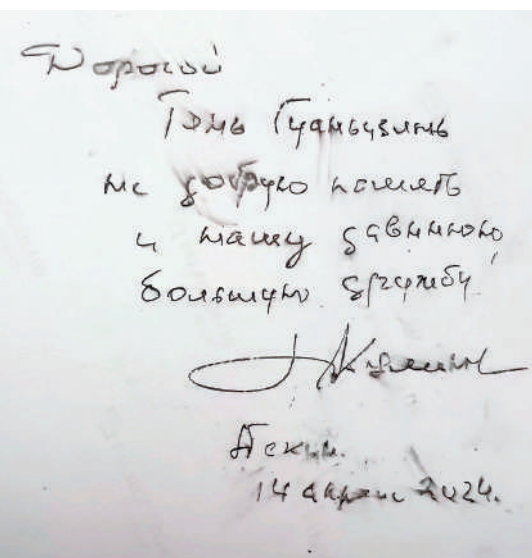 Дорогой
Гэнь Гуаньузинь
на добрую память
и нашу давнюю
большую дружбу
Пекин.
14 апреля 2024.